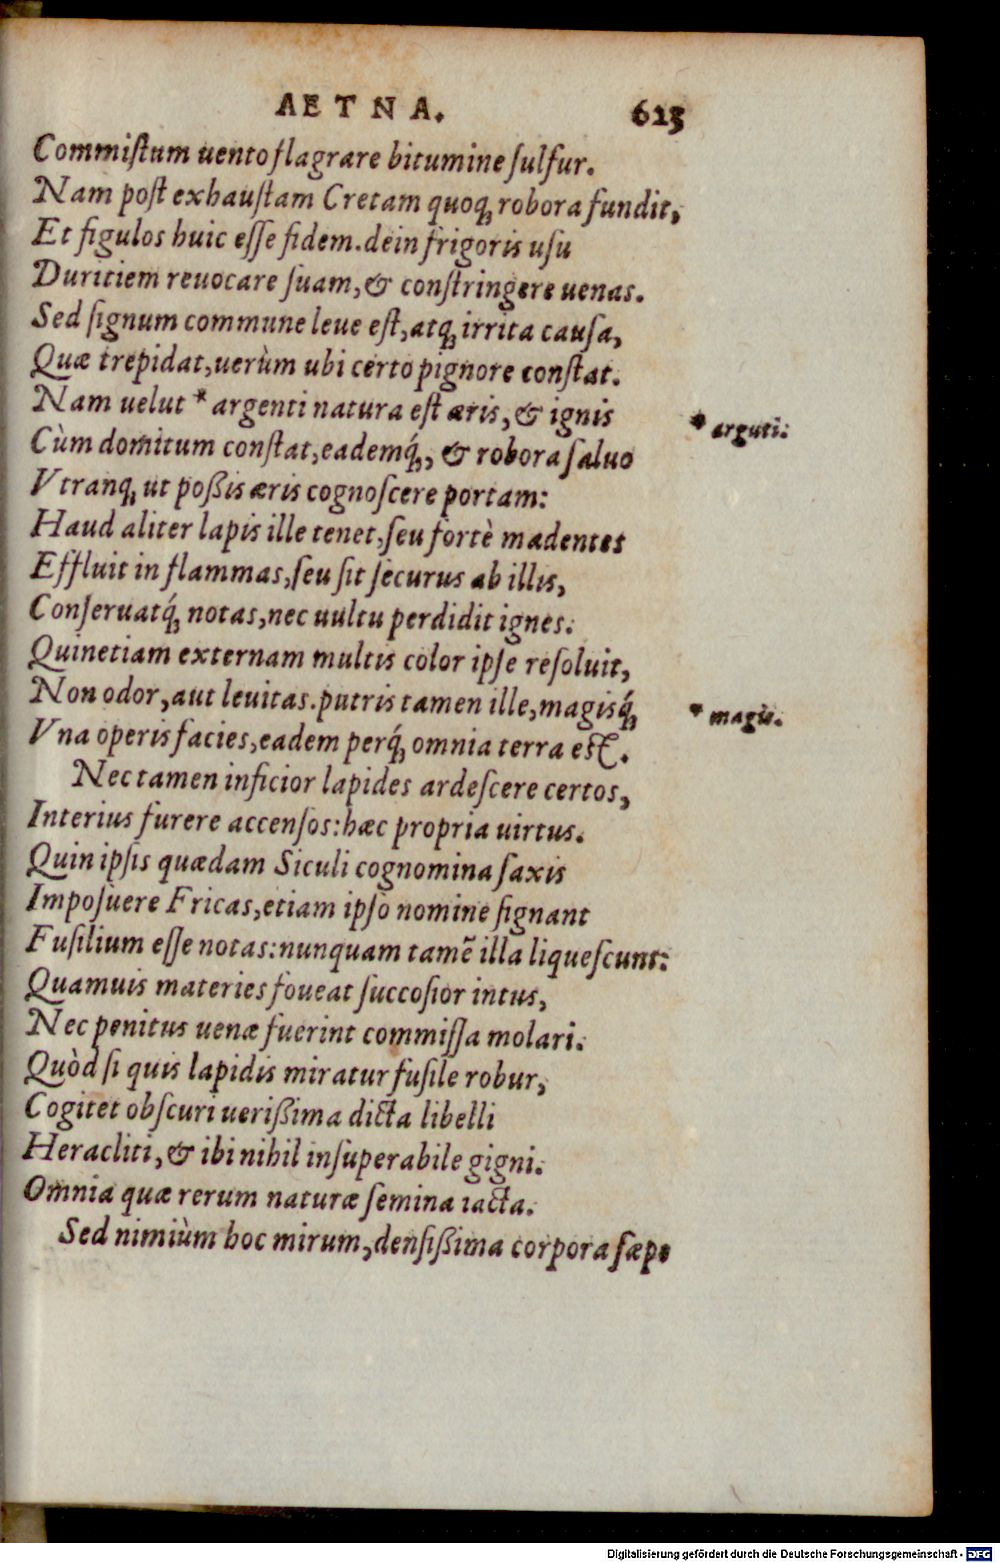 AETNA. 613
Commiſtum uento flagrare bitumine ſulfur.
Nam poſt exhauſtam Cretam quoq; robora fundit,
Et figulos huic eſſe fidem. dein frigoris uſu
Duritiem reuocare ſuam, & conſtringere uenas.
Sed ſignum commune leue eſt, atq; irrita cauſa,
Quæ trepidat, uerùm ubi certo pignore conſtat.
Nam uelut * argenti natura eſt æris, & ignis
* arguti:
Cùm domitum conſtat, eademq́;, & robora ſaluo
Vtranq; ut poßis æris cognoſcere portam:
Haud aliter lapis ille tenet, ſeu fortè madentes
Effluit in flammas, ſeu ſit ſecurus ab illis,
Conſeruatq́; notas, nec uultu perdidit ignes.
Quinetiam externam multis color ipſe reſoluit,
Non odor, aut leuitas. putris tamen ille, magisq́;
* magis.
Vna operis facies, eadem perq́; omnia terra eſt.
Nec tamen inficior lapides ardeſcere certos,
Interius furere accenſos: hæc propria uirtus.
Quin ipſis quædam Siculi cognomina ſaxis
Impoſuere Fricas, etiam ipſo nomine ſignant
Fuſilium eſſe notas: nunquam tamẽ illa liqueſcunt:
Quamuis materies foueat ſuccoſior intus,
Nec penitus uenæ fuerint commiſſa molari.
Quòd ſi quis lapidis miratur fuſile robur,
Cogitet obſcuri uerißima dicta libelli
Heracliti, & ibi nihil inſuperabile gigni.
Omnia quæ rerum naturæ ſemina iacta.
Sed nimiùm hoc mirum, denſißima corpora ſæpe
Digitalisierung gefördert durch die Deutsche Forschungsgemeinschaft - DFG